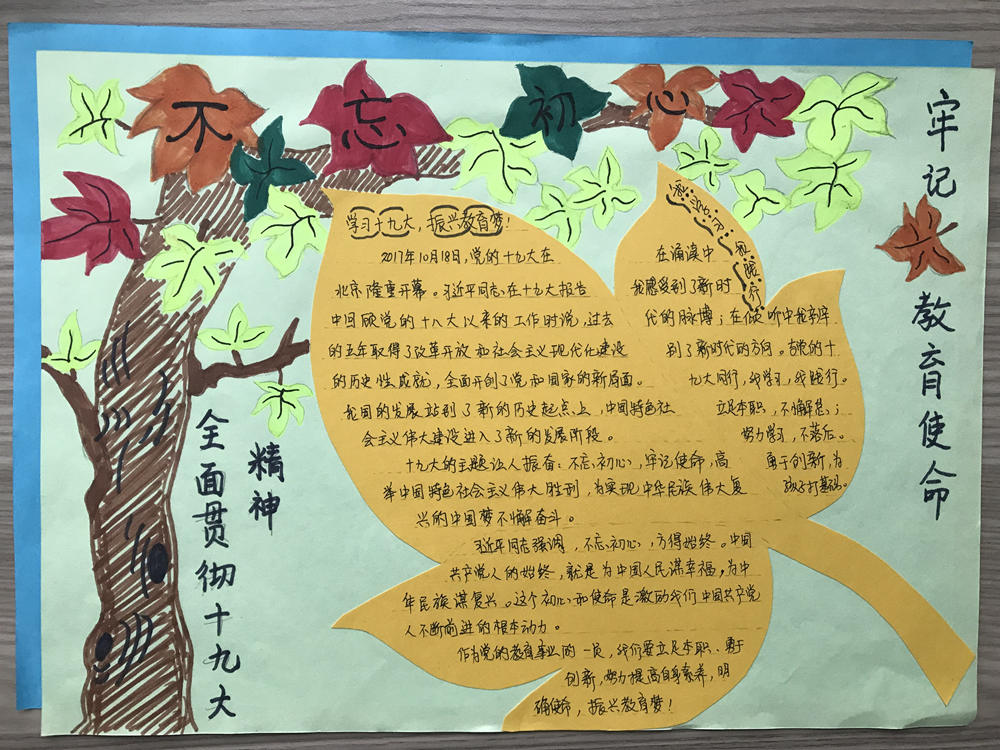 不忘初心
牢记
教育使命
学习十九大，振兴教育梦！
2017年10月18日，党的十九大在
北京隆重开幕。习近平同志在十九大报告
中回顾党的十八大以来的工作时说，过去
的五年取得了改革开放和社会主义现代化建设
的历史性成就，全面开创了党和国家的新局面。
我国的发展站到了新的历史起点上，中国特色社
会主义伟大建设进入了新的发展阶段。
十九大的主题让人振奋：不忘初心，牢记使命，高
举中国特色社会主义伟大胜利，为实现中华民族伟大复
兴的中国梦不懈奋斗。
习近平同志强调，不忘初心，方得始终。中国
共产党人的始终，就是为中国人民谋幸福，为中
华民族谋复兴。这个初心和使命是激励我们中国共产党
人不断前进的根本动力。
作为党的教育事业的一员，我们要立足本职、勇于
创新，努力提高自身素养，明
确使命，振兴教育梦！
我学习 我践行
在诵读中
我感受到了新时
代的脉搏；在倾听中我辨
别了新时代的方向。与党的十
九大同行，我学习，我践行。
立足本职，不懈怠；
努力学习，不落后。
勇于创新，为
孩子打基础。
全面贯彻十九大
精神